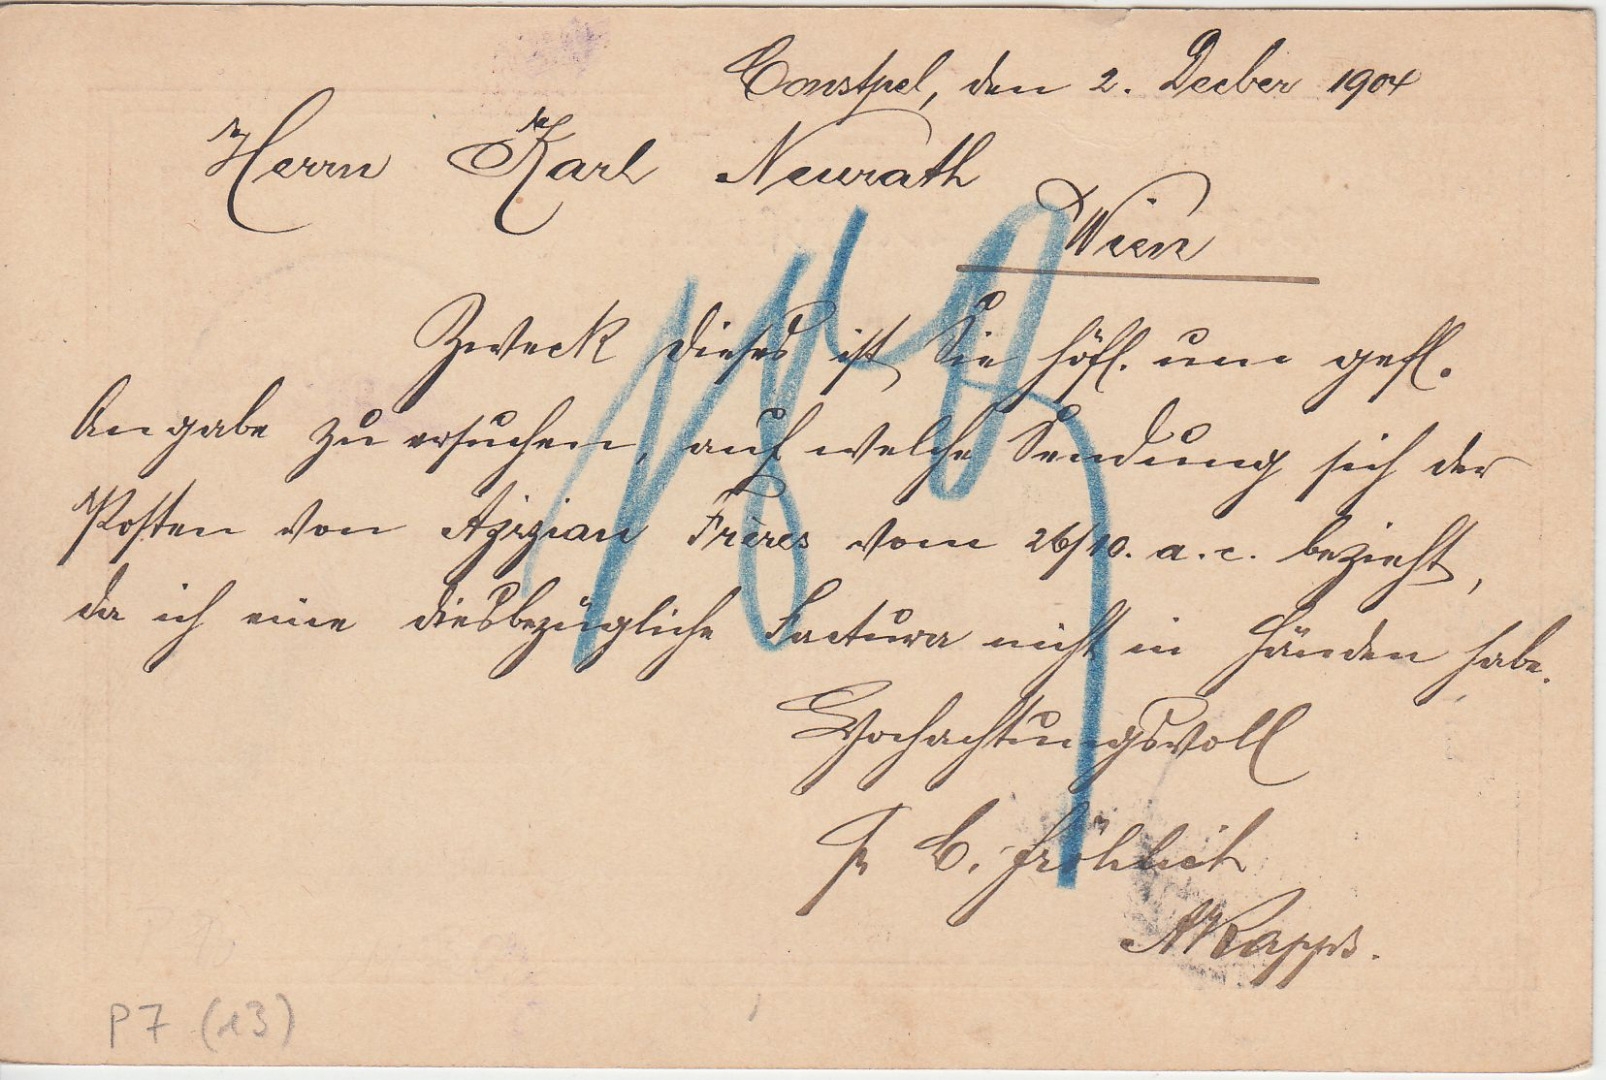 Constpel, den 2. Decber 1904
Herrn Karl Neurath
Wien
Zweck dieses ist Sie höfl. um gefl.
Angabe zu ersuchen, auf welche Sendung sich der
Posten von Azizian Frères vom 26/10. a. c. bezieht,
da ich eine diesbezügliche Factura nicht in Händen habe.
Hochachtungsvoll
C. Fröhlich
P7 (13)